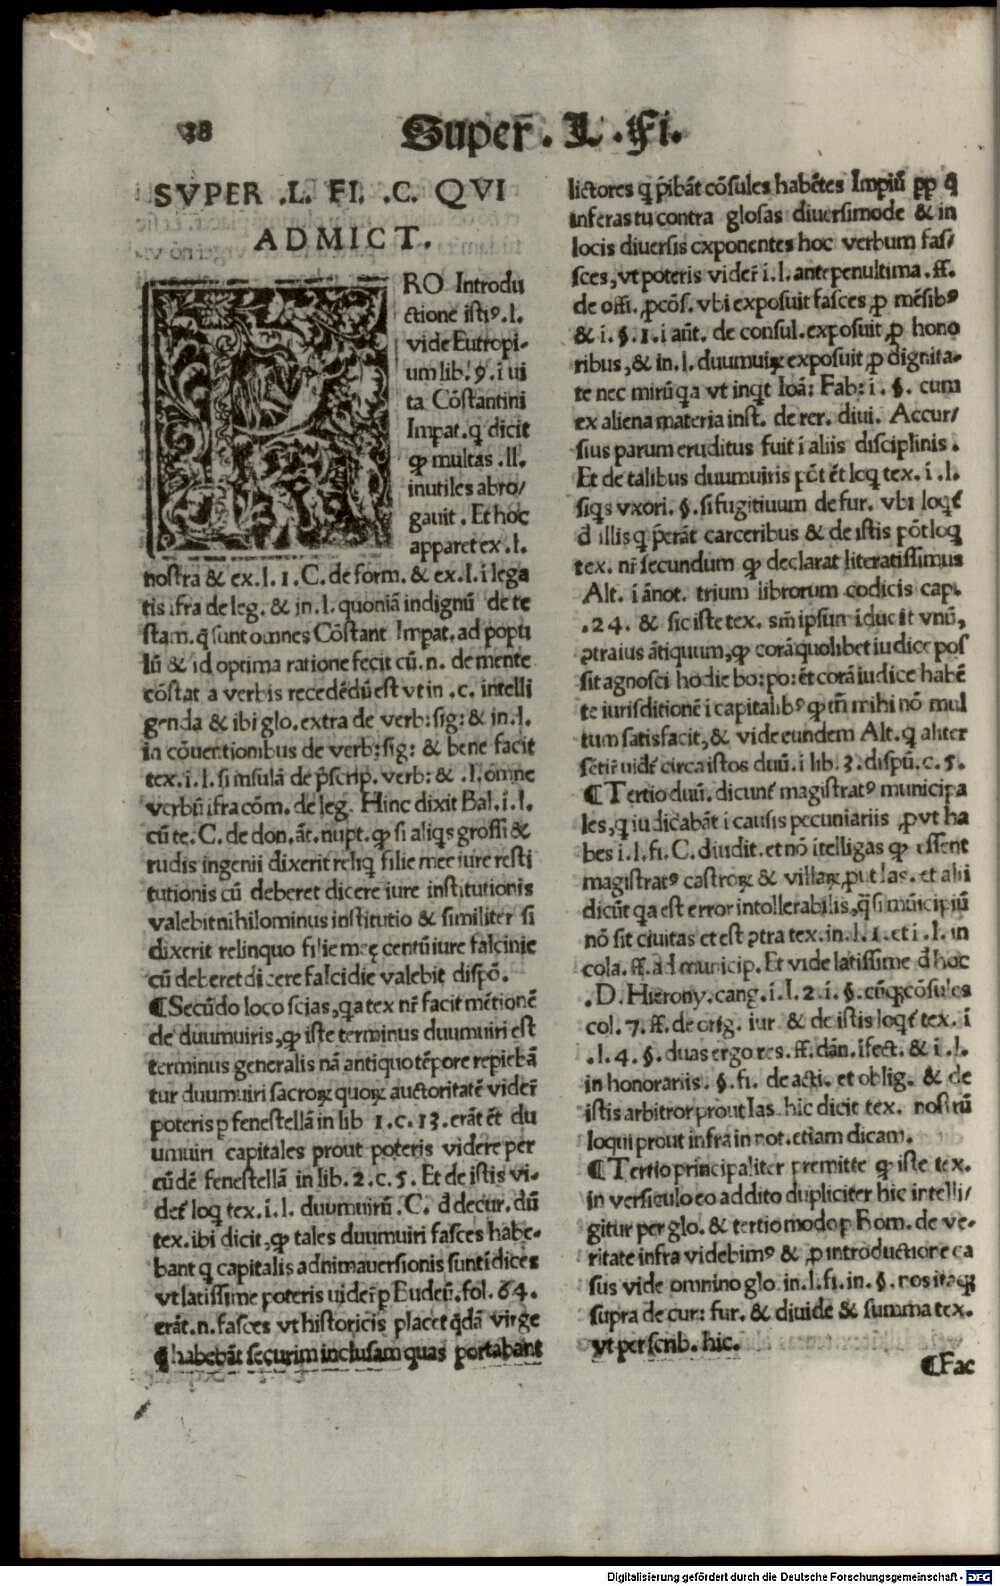 38
Super̃ . L . Fi.
SVPER .L. FI. .C. QVI
ADMICT.
PRO Introdu
ctione istiꝰ .l.
vide Eutropi-
um lib. 9. i ui
ta Cōstantini
Impat. q̄ dicit
ꝙ multas .ll.
inutiles abro/
gauit . Et hoc
apparet ex .l.
nostra & ex .l. 1. C. de form. & ex .l. i lega
tis ifra de leg. & in .l. quoniā indignū de te
stam. q̄ sunt omnes Cōstant Impat. ad popu
lū & id optima ratione fecit cū .n. de mente
cōstat a verbis recedēdū est vt in .c. intelli
genda & ibi glo. extra de verb: sig: & in .l.
in cōuentionibus de verb: sig: & bene facit
tex. i .l. si insulā de p̄scrip. verb: & .l. omne
verbū ifra cōm. de leg. Hinc dixit Bal. i .l.
cū te. C. de don. āt. nupt. ꝙ si aliq̄s grossi &
rudis ingenii dixerit reliq̄ filie mee iure resti
tutionis cū deberet dicere iure institutionis
valebit nihilominus institutio & similiter si
dixerit relinquo filie meę centū iure falcinie
cū deberet dicere falcidie valebit dispō.
¶Secūdo loco scias, q̄a tex nr̄ facit mētionē
de duumuiris, ꝙ iste terminus duumuiri est
terminus generalis nā antiquo tēpore repiebā
tur duumuiri sacroꝝ quoꝝ auctoritatē vider̃
poteris ꝑ fenestellā in lib 1. c. 13. erāt ēt du
umuiri capitales prout poteris videre per
eūdē fenestellā in lib. 2. c. 5. Et de istis vi-
det̃ loq̄ tex. i .l. duumuirū. C. d̄ decur. dū
tex. ibi dicit, ꝙ tales duumuiri fasces habe-
bant q̄ capitalis adnimauersionis sunt idices
vt latissime poteris uider̃ ꝑ Eudeū. fol. 64.
erāt .n. fasces vt historicis placet q̄dā virge
¶habebāt securim inclusam quas portabant
lictores q̄ p̄ibāt cōsules habētes Impiū ꝓp̄ q̄
inferas tu contra glosas diuersimode & in
locis diuersis exponentes hoc verbum fas/
sces, vt poteris vider̃ i .l. antepenultima. ff.
de offi. ꝓcōs. vbi exposuit fasces ꝓ mēsibꝰ
& i . §. 1. i aūt. de consul. exposuit ꝓ hono
ribus, & in .l. duumuiꝝ exposuit ꝓ dignita-
te nec mirū q̄a vt inq̄t Ioā: Fab: i . §. cum
ex aliena materia inst. de rer. diui. Accur/
sius parum eruditus fuit i aliis disciplinis .
Et de talibus duumuiris pōt ēt loq̄ tex. i .l.
siq̄s vxori. §. si fugitiuum de fur. vbi loq̄t̃
d̄ illis q̄ p̄erāt carceribus & de istis pōt loq̄
tex. nr̄ secundum ꝙ declarat literatissimus
Alt. i ānot. trium librorum codicis cap.
.24. & sic iste tex. sm̄ ipsum iducit vnū,
ꝯtraius ātiquum, ꝙ corā quolibet iudice pos
sit agnosci hodie bo: po: ēt corā iudice habē
te iurisditionē i capitalibꝰ ꝙ tn̄ mihi nō mul
tum satisfacit, & vide eundem Alt. q̄ aliter
sētir̃ uidet̃ circa istos duū. i lib. 3. dispū. c. 5.
¶Tertio duū. dicunt̃ magistratꝰ municipa
les, q̄ iudicabāt i causis pecuniariis ,ꝓvt ha
bes i .l. fi. C. diudit. et nō itelligas ꝙ essent
magistratꝰ castroꝝ & villaꝝ, ꝓut Ias. et alii
dicūt q̄a est error intollerabilis, q̄si mūicipiū
nō sit ciuitas et est ꝯtra tex. in .l. 1. et i .l. in
cola. ff. ad municip. Et vide latissime d̄ hoc
.D. Hierony. cang. i .l. 2. i . §. cūq̄ꝫ cōsules
col. 7. ff. de orig. iur & de istis loq̄t̃ tex. i
.l. 4. §. duas ergo res. ff. dān. ifect. & i .l.
in honorariis. §. fi. de acti. et oblig. & de
istis arbitror prout Ias. hic dicit tex. nostrū
loqui prout infra in not. etiam dicam.
¶Tertio principaliter premitte ꝙ iste tex.
in versiculo eo addito dupliciter hic intelli/
gitur per glo. & tertio modo ꝑ Rom. de ve-
ritate infra videbimꝰ & ꝓ introductione ca
sus vide omnino glo. in .l. fi. in . §. nos itaqꝫ
supra de cur: fur. & diuide & summa tex.
vt per scrib. hic.
¶Fac
Digitalisierung gefördert durch die Deutsche Forschungsgemeinschaft - DFG